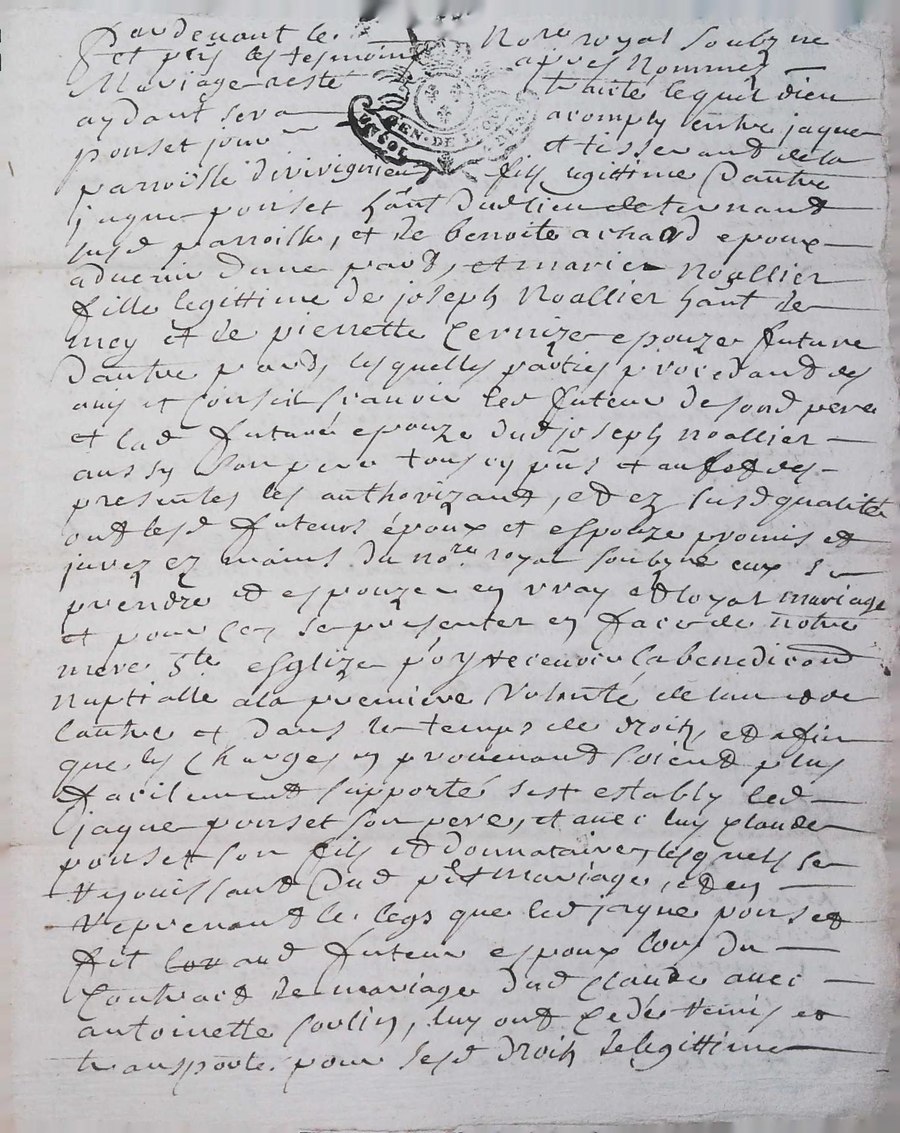 Pardevant le nore royal soubzne
et pns les tesmoins apres nommez
Mariage reste traicte lequel dieu
aydant sera acomply entre jaque
ponset jour et tisserand de la
parroisse fils legittime d'autre
jaque ponset hant dud lieu de ternand
susd parroisse, et de benoite achard epoux
advenir d'une part, et marie noallier
fille legittime de joseph noallier hant de
et de pierrette epouze future
d'autre part, lesquelles parties procedant des
avis et conseil scavoir led futeur de sond pere
et lad future epouze dud joseph noallier
aussy son pere tous cy pns et aux fct des
presentes les authorizant, et ez susd qualité
ont lesd futeurs époux et espouze promis et
jurez ez mains du nore royal soubzne eux se
prendre et espouzer en vray et loyal mariage
et pour ce se presenter en face de notre
mere ste esglize p'oy recevoir la benedicon
nuptialle a la premiere volonté de lun et de
lautre et dans le temps de droit, et afin
que les charges en provenant soient plus
facilement supporté sest estably led
jaque ponset son pere, et avec luy claude
ponset son fils et donnataire, lesquels se
rejouissant dud pnt mariage, et en
reprenant le legs que led jaque ponset
fit aud futeur espoux lors du
contract de mariage dud claude avec
antoinette soulin, luy ont cedé remis et
transporté pour sesd droits de legittime
GEN. DE LYON